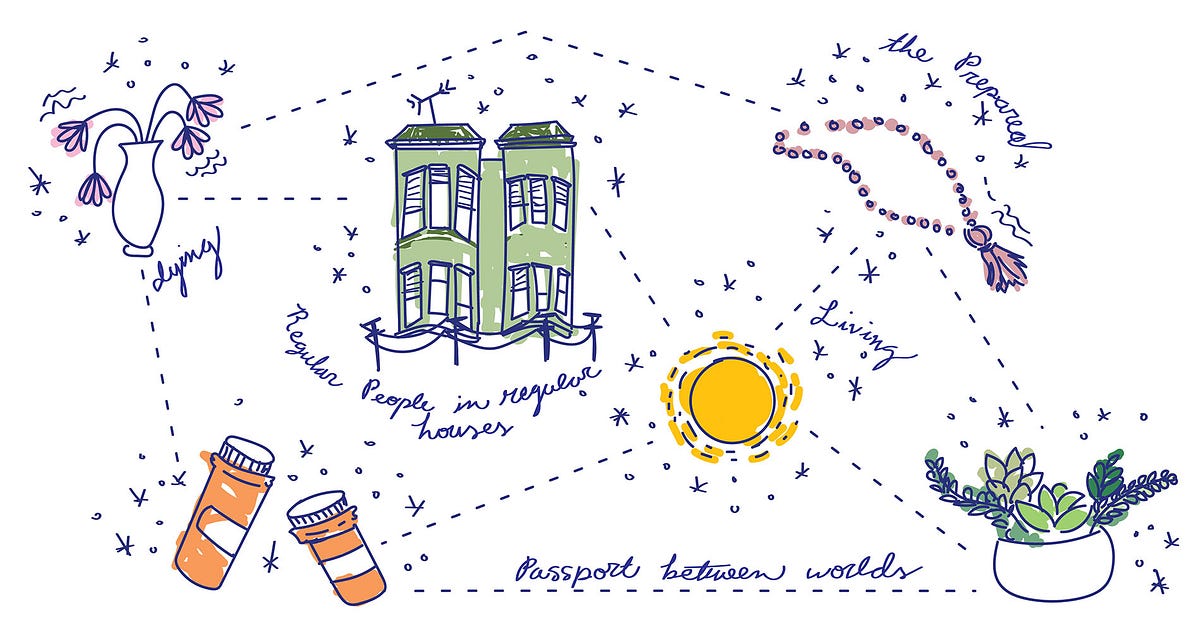 the Prepared
dying
Regular
People in regular
houses
Living
Passport between worlds